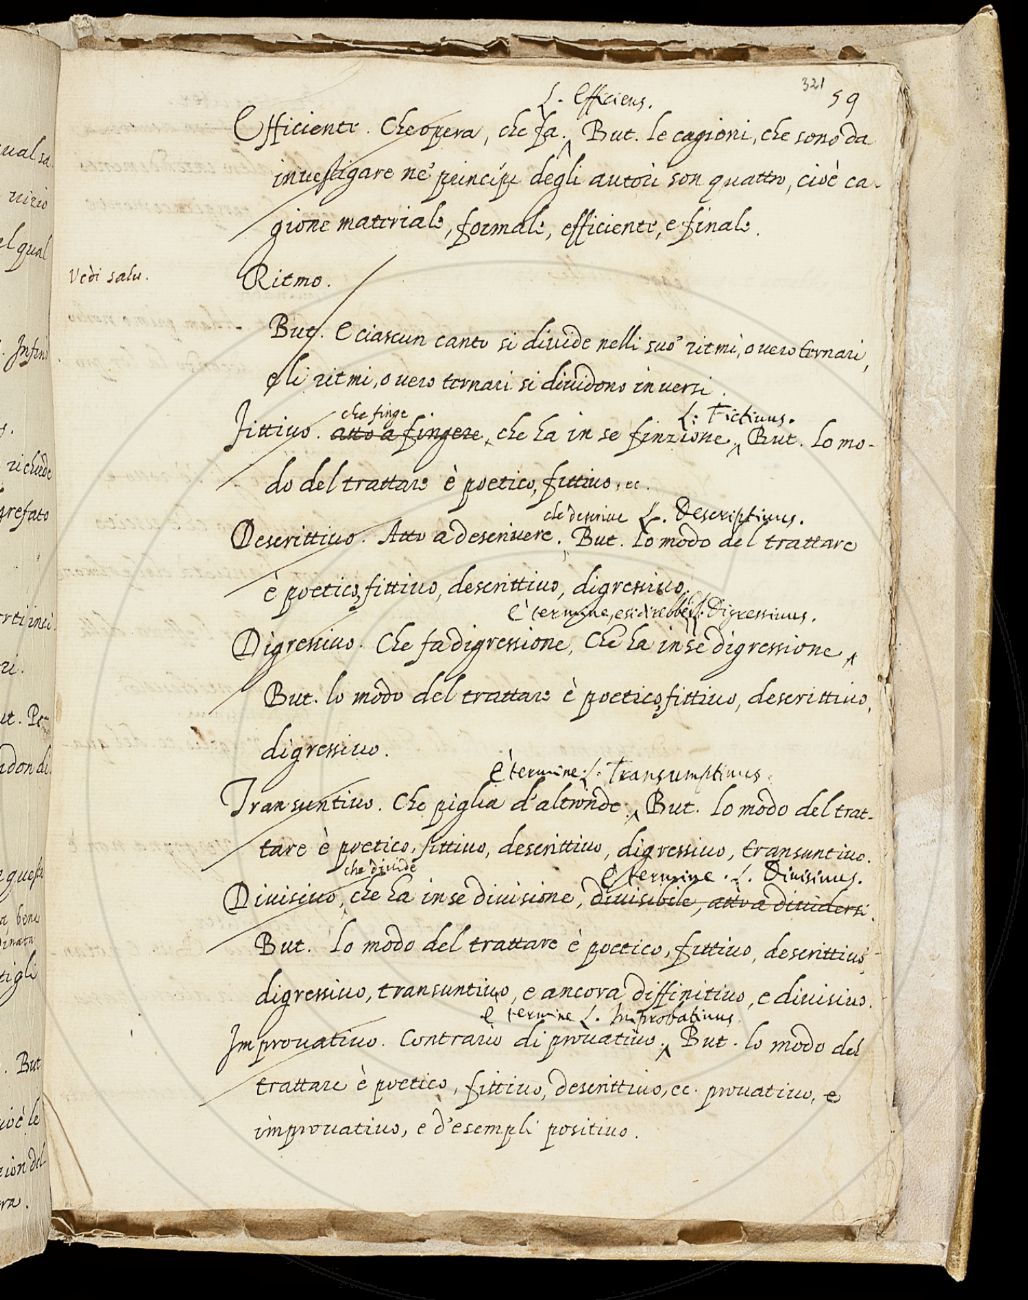 321
59
L. Efficiens.
Efficiente. Che opera, che fa. But. le cagioni, che sono da
investigare ne' principj degli autori son quattro, cioè ca-
gione materiale, formale, efficiente, e finale.
Vedi salu.
Ritmo.
But. E ciascun canto si divide nelli suo' ritmi, o vero ternari,
e li ritmi, o vero ternari si dividono in versi.
che finge
L. Fictivus.
Fittivo. atto a fingere, che ha in se finzione, But. lo mo-
do del trattare è poetico, fittivo, ec.
che descrive L. Descriptivus.
Descrittivo. Atto a descrivere. But. Lo modo del trattare
è poetico, fittivo, descrittivo, digressivo,
È termine, e si direbbe L. Digressivus.
Digressivo. Che fa digressione, Che ha in se digressione
But. lo modo del trattare è poetico, fittivo, descrittivo,
digressivo.
È termine L. Transumptivus.
Transuntivo. Che piglia d'altronde. But. lo modo del trat-
tare è poetico, fittivo, descrittivo, digressivo, transuntivo.
che divide
È termine. L. Divisivus.
Divisivo, che ha in se divisione, divisibile, atto a dividersi.
But. Lo modo del trattare è poetico, fittivo, descrittivo,
digressivo, transuntivo, e ancora diffinitivo, e divisivo.
È termine L. Improbativus.
Improvativo. Contrario di provativo. But. lo modo del
trattare è poetico, fittivo, descrittivo, ec. provativo, e
improvativo, e d'esempli positivo.